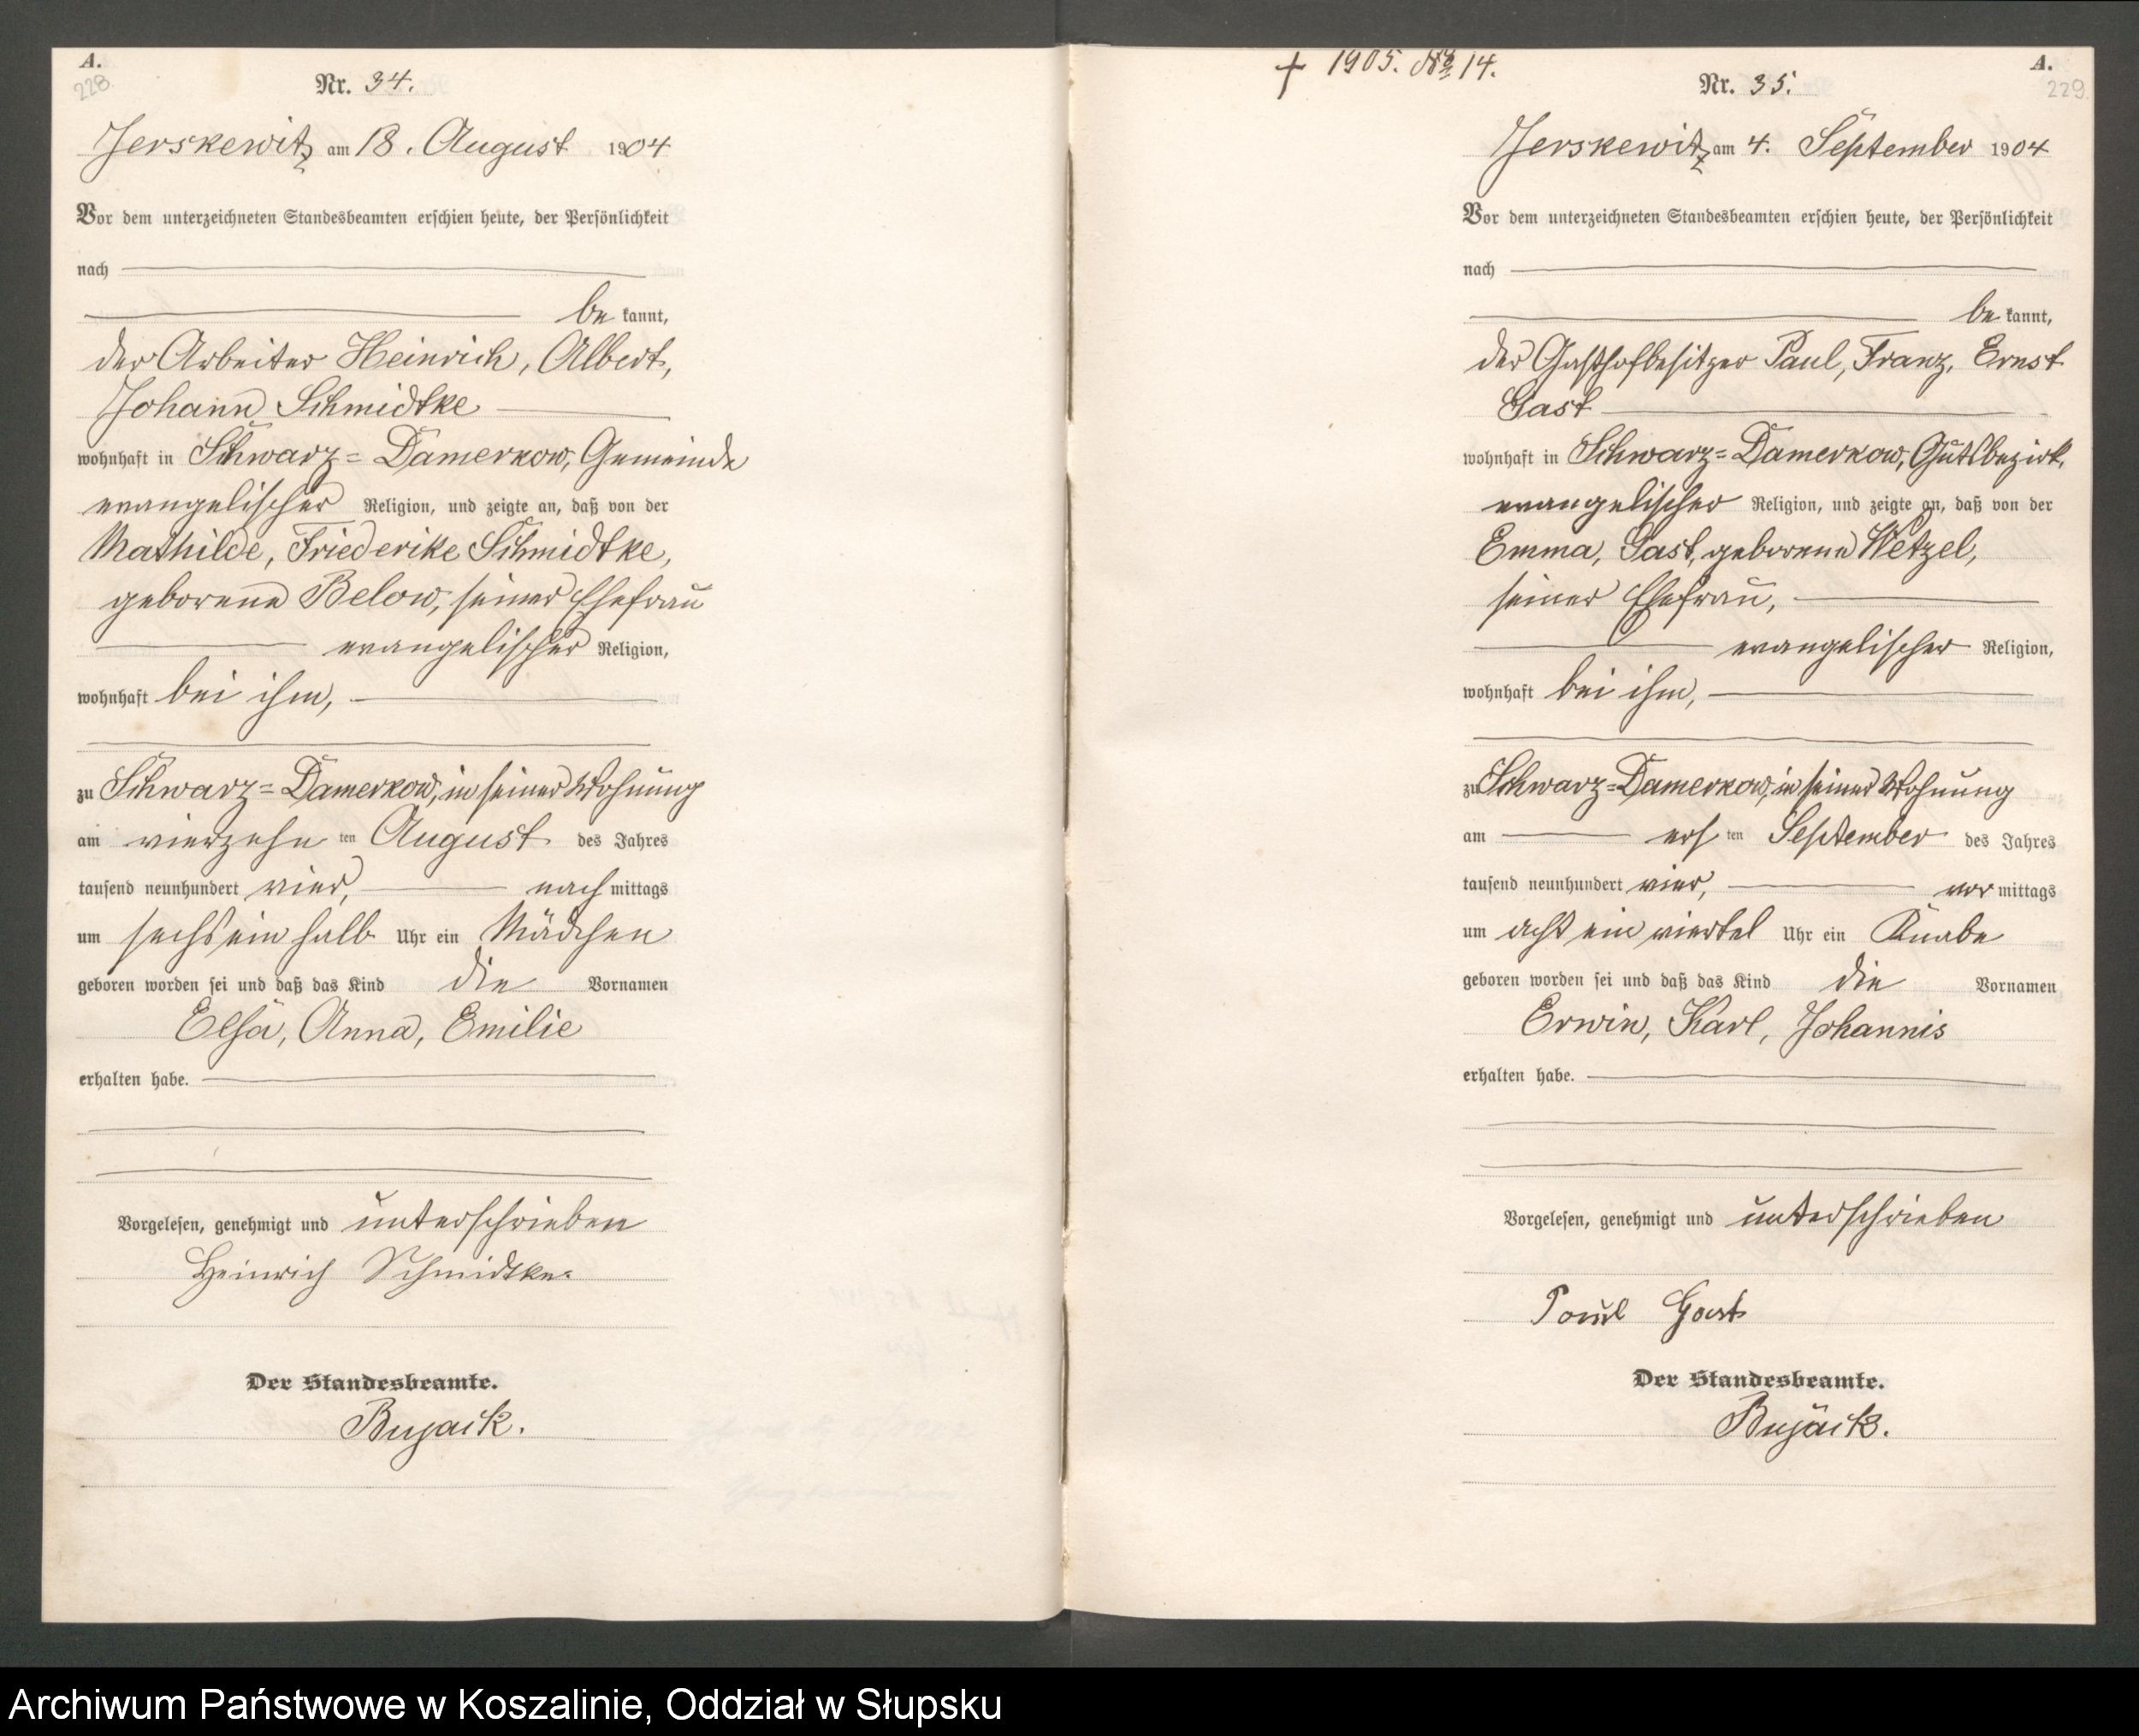 A.
228.
Nr. 34.
Jerskewitz am 18. August 1904
Vor dem unterzeichneten Standesbeamten erschien heute, der Persönlichkeit
nach
be kannt,
der Arbeiter Heinrich, Albert,
Johann Schmidtke
wohnhaft in Schwarz=Damerkow, Gemeinde
evangelischer Religion, und zeigte an, daß von der
Mathilde, Friederike Schmidtke,
geborene Below, seiner Ehefrau
evangelischer Religion,
wohnhaft bei ihm,
zu Schwarz=Damerkow, in seiner Wohnung
am vierzehn ten August des Jahres
tausend neunhundert vier, nach mittags
um sechs ein halb Uhr ein Mädchen
geboren worden sei und daß das Kind die Vornamen
Elsa, Anna, Emilie
erhalten habe.
Vorgelesen, genehmigt und unterschrieben
Heinrich Schmidtke.
Der Standesbeamte.
Bujack.
† 1905. No 14.
A.
229.
Nr. 35.
Jerskewitz am 4. September 1904
Vor dem unterzeichneten Standesbeamten erschien heute, der Persönlichkeit
nach
be kannt,
der Gasthofbesitzer Paul, Franz, Ernst
Gast
wohnhaft in Schwarz=Damerkow, Gutsbezirk,
evangelischer Religion, und zeigte an, daß von der
Emma, Gast, geborene Wetzel,
seiner Ehefrau,
evangelischer Religion,
wohnhaft bei ihm,
zu Schwarz=Damerkow, in seiner Wohnung
am ers ten September des Jahres
tausend neunhundert vier, vor mittags
um acht ein viertel Uhr ein Knabe
geboren worden sei und daß das Kind die Vornamen
Erwin, Karl, Johannis
erhalten habe.
Vorgelesen, genehmigt und unterschrieben
Paul Gast
Der Standesbeamte.
Bujack.
Archiwum Państwowe w Koszalinie, Oddział w Słupsku